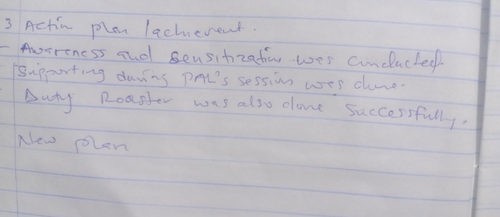 3 Actin plan / achievent.
- Awareness and Sensitization was conducted
Supporting during PAL's session was done.
- Duty Roaster was also done successfully.
New plan